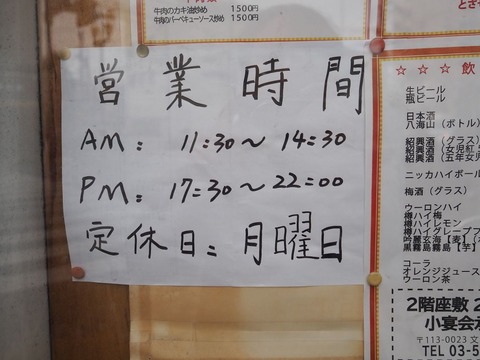 牛肉のカキ油炒め 1500円
牛肉のバーベキューソース炒め 1500円
営業時間
AM: 11:30～14:30
PM: 17:30～22:00
定休日: 月曜日
☆☆☆飲
生ビール
瓶ビール
日本酒
八海山(ボトル)
紹興酒(グラス)
紹興酒(女児紅
紹興酒(五年女児
ニッカハイボール
梅酒(グラス)
ウーロンハイ
樽ハイ梅
樽ハイレモン
樽ハイグレープフ
吟麗玄海【麦】(
黒霧島【芋】
コーラ
オレンジジュース
ウーロン茶
2階座敷 2
小宴会
〒113-0023 文
TEL 03-5